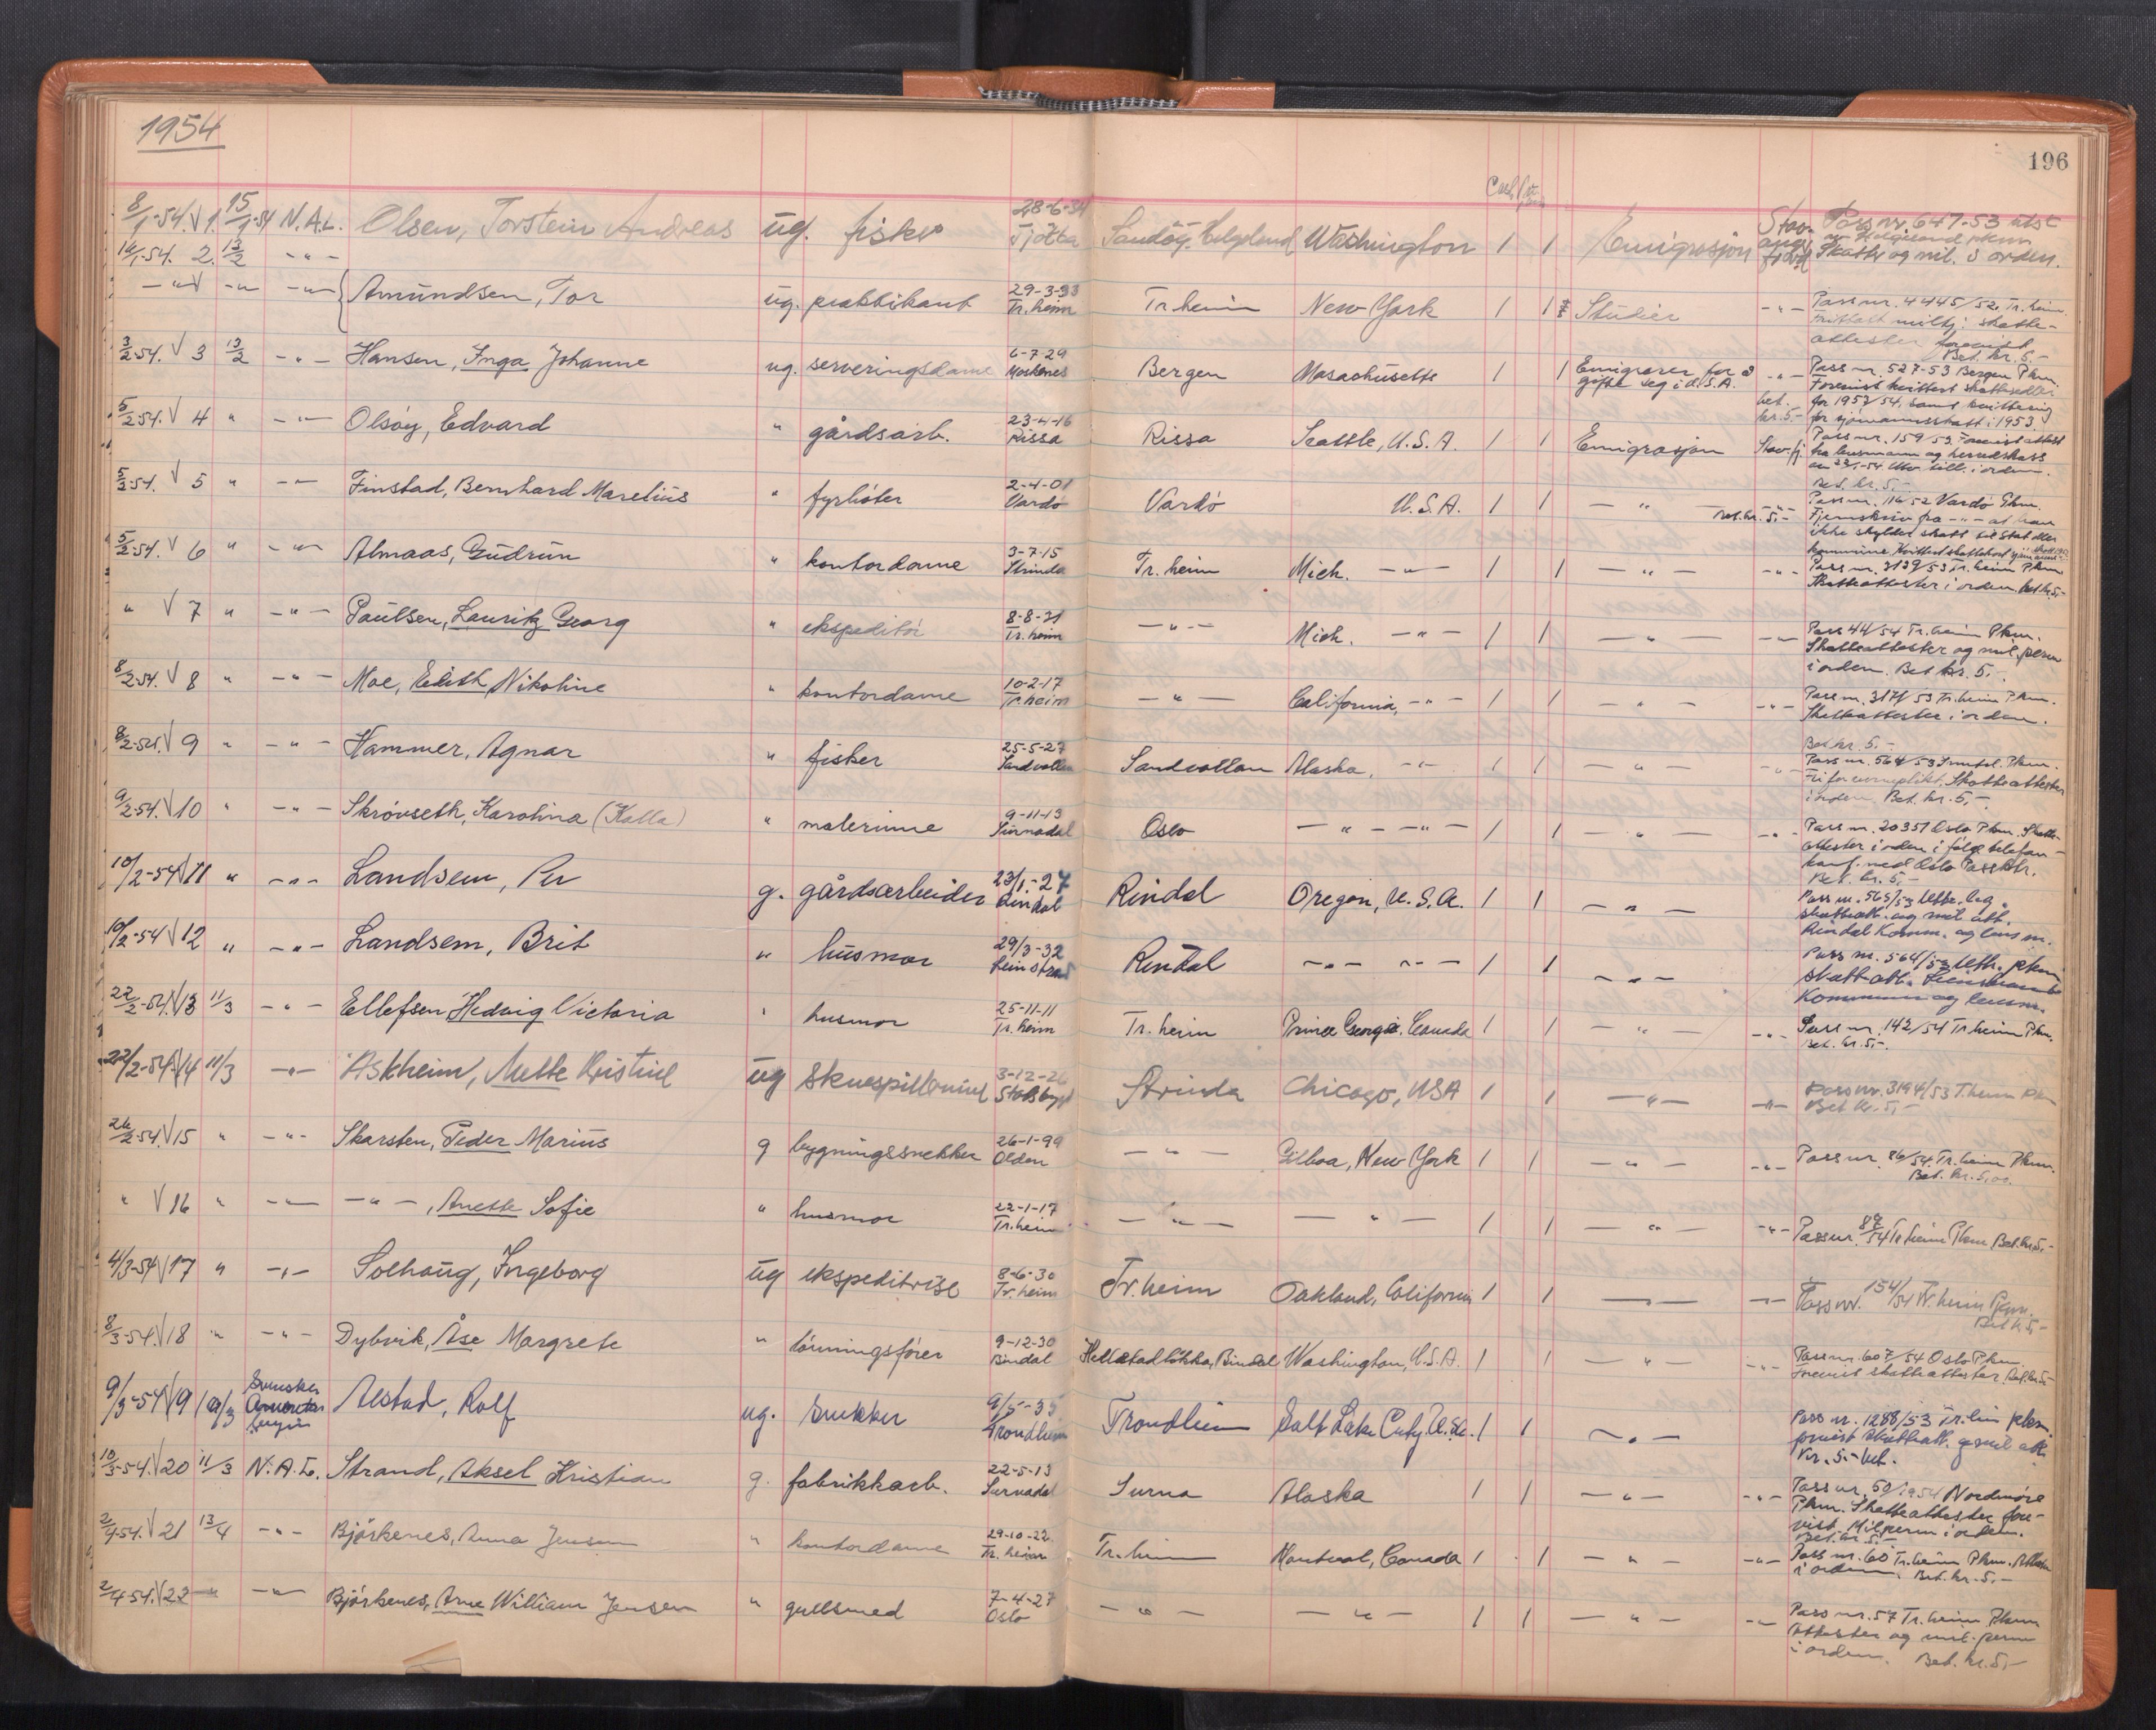 1954
196
8/1-54. √ 1. 15/1-54 N.A.L. Olsen, Torstein Andreas ug. fisker 28-6-34 Tjøtta Sandöy, Helgeland Washington 1 1 Emigrasjon Pass nr. 647-53 utst
Skatt og mil. i orden.
14/1-54. 2. 13/2 -"-
-"- √ -"- -"- Amundsen, Tor ug. praktikant 29-3-33 Tr.heim Tr.heim New York 1 1 Studier -"- Pass nr. 4445/52, Tr.heim
attester forevist
Bet. kr. 5.-
3/2-54. √ 3 13/2 -"- Hansen, Inga Johanne ug. serveringsdame 6-7-29 Moskenes Bergen Masachusetts 1 1 Emigrerer for å gifte seg i U.S.A. -"- Pass nr. 527-53 Bergen Pkm.
Forevist kvittert skatteseddel
for 1953/54, samt kvittering
for sjömannsskatt i 1953
bet. kr. 5-
5/2-54. √ 4 " -"- Olsøy, Edvard " gårdsarb. 23-4-16 Rissa Rissa Seattle, U.S.A 1 1 Emigrasjon Stav.fj. Pass nr. 159/53. Forevist attest
fra lensmann og herredskass
Bet. kr. 5.-
5/2-54. √ 5 " -"- Finstad, Bernhard Marelius " fyrböter 2-4-01 Vardö Vardö U.S.A. 1 1 -"- Bet. kr. 5.- Pass nr. 116/52 Vardö Pkm.
ikke skylder skatt til stat eller
5/2-54. √ 6 " -"- Almaas, Gudrun " kontordame 3-7-15 Strinda Tr.heim Mich. -"- 1 1 -"- -"- Pass nr. 3139/53 Tr.heim Pkm
Skatteattester i orden. bet. kr. 5,-
" √ 7 " -"- Paulsen, Lauritz Georg " ekspeditör 8-8-31 Tr.heim -"- Mich. -"- 1 1 -"- -"- Pass 44/54 Tr.heim Pkm.
Skatteattester og mil. perm
i orden. Bet. kr. 5.-
8/2-54. √ 8 " -"- Moe, Edith Nikoline " kontordame 10-2-17 Tr.heim -"- California, -"- 1 1 -"- -"- Pass nr. 3171/53 Tr.heim Pkm.
Skatteattester i orden.
Bet. kr. 5.-
8/2-54. √ 9 " -"- Hammer, Agnar " fisker 25-5-27 Sandvollan Sandvollan Alaska, -"- 1 1 -"- -"- Pass nr. 564/53 Inntrl. Pkm.
Fri for verneplikt. Skatteattester
i orden. Bet. kr. 5,-
9/2-54. √ 10 " -"- Skrövseth, Karolina (Kalla) " malerinne 9-11-13 Surnadal Oslo -"- -"- 1 1 -"- -"- Pass nr. 20351 Oslo Pkm. Skatte-
attester i orden i følge telefon-
konf. med Oslo Passktr.
Bet. kr. 5,-
10/2-54 √ 11 " -"- Landsem, Per g. gårdsarbeider 23/1-27 Rindal Rindal Oregon, U.S.A. 1 1 -"- Pass nr. 565/53
skatteatt. og mil. att.
Rindal Komm. og lensm.
10/2-54 √ 12 " -"- Landsem, Brit " husmor 29/3-32 Leinstrand Rindal -"- -"- 1 1 -"- Pass nr. 564/53
skatteatt. Leinstrand
Kommune og lensm.
22/2-54. √ 13 11/3 -"- Ellefsen Hedvig Victoria " husmor 25-11-11 Tr.heim Tr.heim Prince George, Canada 1 1 -"- -"- Pass nr. 142/54 Tr.heim Pkm.
Bet. kr. 5,-
22/2-54. √ 14 11/3 -"- Askheim, Mette Kristine ug skuespillerinne 3-12-26 Stadsbygd Strinda Chicago, USA 1 1 -"- -"- Pass nr. 3194/53 T.heim Pkm
Bet kr. 5,-
26/2-54. √ 15 " -"- Skarsten, Peder Marius g bygningssnekker 26-1-99 Olden -"- Gilboa, New York 1 1 -"- -"- Pass nr. 86/54. Tr.heim Pkm.
Bet. kr. 5,00.
" √ 16 " -"- -"-, Anette Sofie " husmor 22-1-17 Tr.heim -"- -"- 1 1 -"- -"- Pass nr. 87/54 Tr.heim Pkm Bet. kr. 5,-
4/3-54 √ 17 " -"- Solhaug, Ingeborg ug ekspeditrise 8-6-30 Tr.heim Tr.heim Oakland, California 1 1 -"- -"- Pass nr. 154/54 Tr.heim Pkm.
Bet kr. 5,-
8/3-54. √ 18 " -"- Dybvik, Åse Margrete " lönningsförer 9-12-30 Bindal Bindal Washington, U.S.A. 1 1 -"- -"- Pass nr. 607/54 Oslo Pkm.
Forevist skatteattester. Bet. kr. 5,-
9/3-54 √ 19 Svenske Amerika linjen Alstad, Rolf ug. snekker 9/5-35 Trondheim Trondheim Salt Lake City. U.S.A. 1 1 -"- Pass nr. 1288/53 Tr.heim pkm.
forevist skatteatt. og mil att.
Kr. 5.- bet.
10/3-54. √ 20 11/3 N.A.L. Strand, Aksel Kristian g. fabrikkarb. 22-5-13 Surnadal Surna Alaska 1 1 -"- -"- Pass nr. 50/1954 Nordmöre
Pkm. Skatteattester fore-
vist. Mil perm i orden.
Bet. kr. 5,-
2/4-54. √ 21 13/4 -"- Björkenes, Anna Jensen " kontordame 29-10-22. Tr.heim Tr.heim Montreal, Canada 1 1 -"- -"- Pass nr. 60 Tr.heim Pkm. Attester
i orden. Bet. kr. 5.-
2/4-54. √ 22 -"- -"- Björkenes, Arne William Jensen " gullsmed 7-4-27 Oslo -"- -"- 1 1 -"- -"- Pass nr. 57 Tr.heim Pkm
Attester og mil. perm
i orden. Bet. kr. 5,-